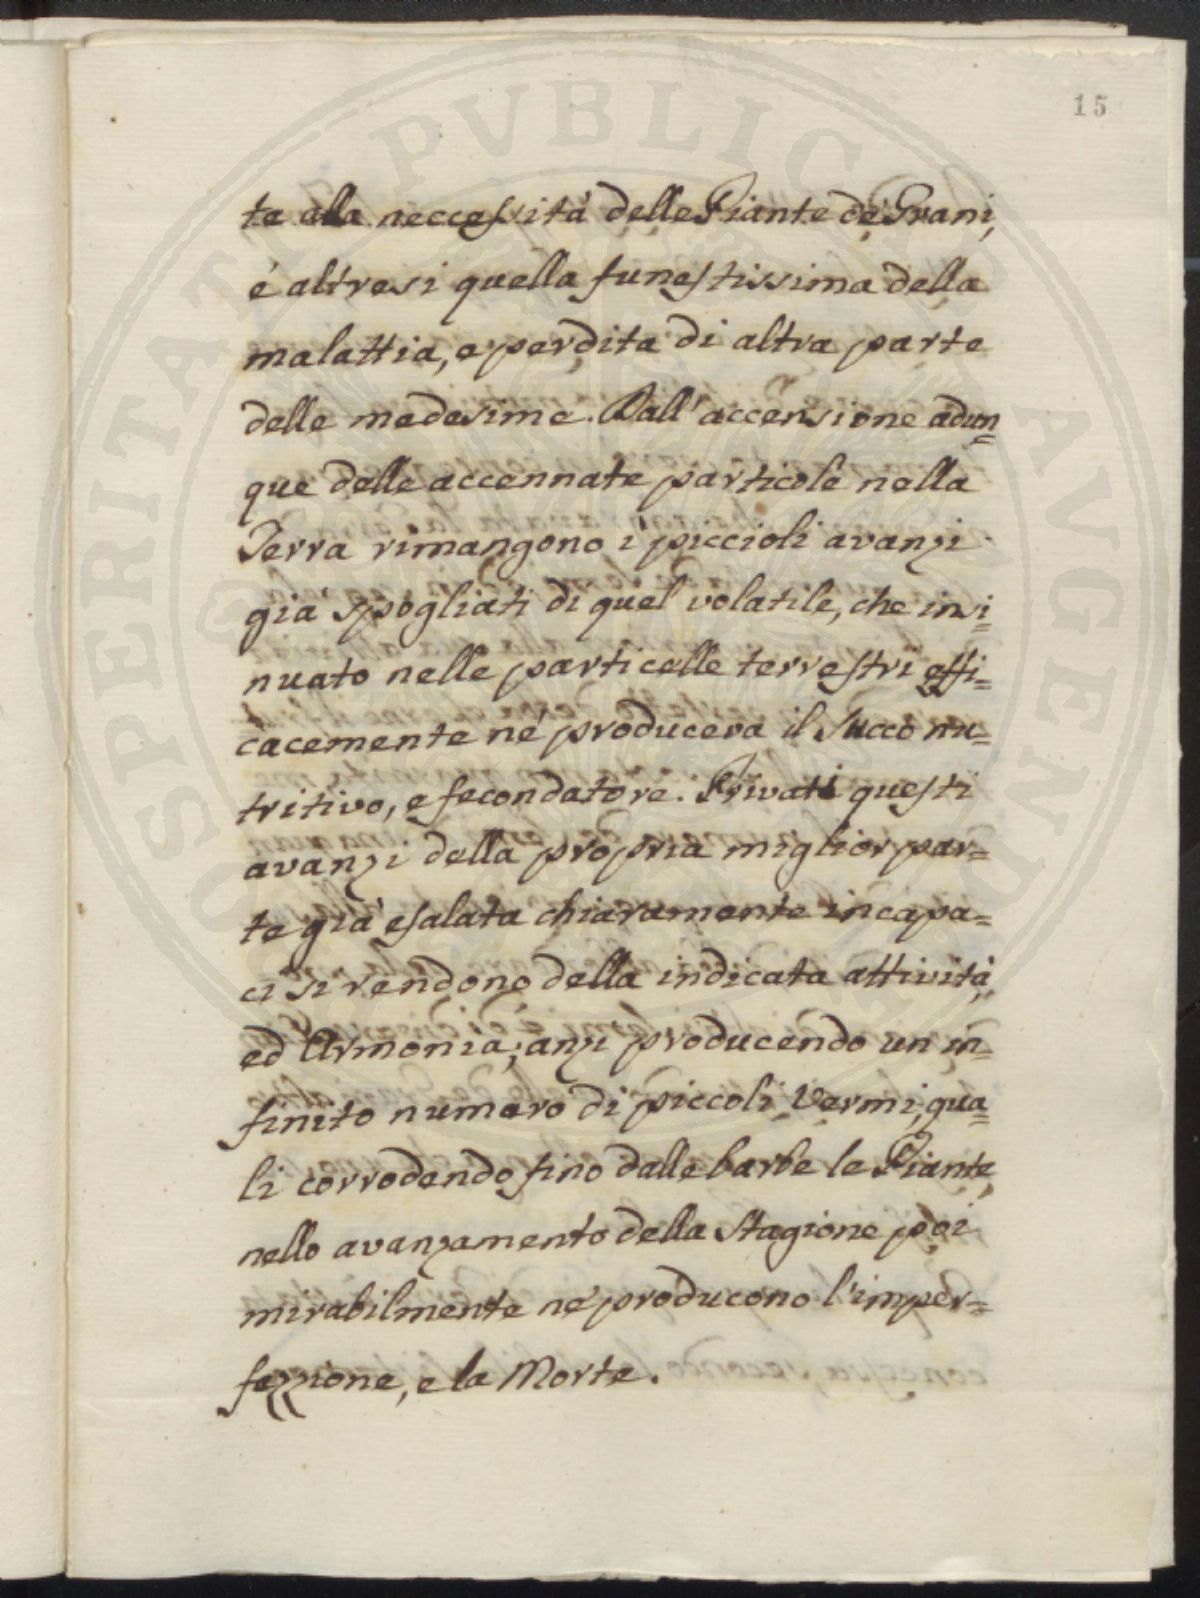 15
te alla neccessità delle Piante de' Grani,
é altresi quella funestissima della
malattia, e perdita di altra parte
delle medesime. Dall' accensione adun=
que delle accennate particole nella
Terra rimangono i piccioli avanzi
gia spogliati di quel volatile, che insi=
nuato nelle particelle terrestri effi=
cacemente né produceva il Succo nu=
tritivo, e fecondatore. Privati questi
avanzi della propria miglior par=
te già esalata chiaramente incapa=
ci si rendono della indicata attività,
ed Armonia; anzi producendo un in=
finito numero di piccoli Vermi, qua=
li corrodendo fino dalle barbe le Piante,
nello avanzamento della Stagione poi
mirabilmente né producono l'imper=
fezzione, e la Morte.
SPERITATI PVBLICÆ AVGENDÆ